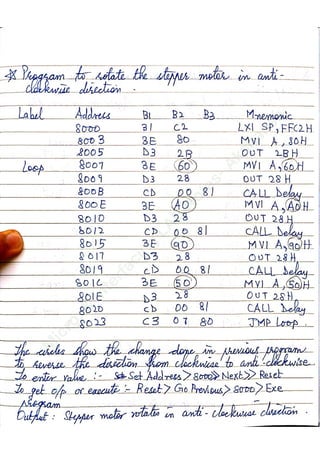 * Program to rotate the stepper motor in anti-
clockwise direction.
Label Address B1 B2 B3 Mnemonic
8000 31 C2 LXI SP, FFC2H
8003 3E 80 MVI A, 80H
8005 D3 2B OUT 2BH
Loop 8007 3E 60 MVI A, 60H
8009 D3 28 OUT 28H
800B CD 00 81 CALL Delay
800E 3E A0 MVI A, A0H
8010 D3 28 OUT 28H
8012 CD 00 81 CALL Delay
8015 3E 90 MVI A, 90H
8017 D3 28 OUT 28H
8019 CD 00 81 CALL Delay
801C 3E 50 MVI A, 50H
801E D3 28 OUT 28H
8020 CD 00 81 CALL Delay
8023 C3 07 80 JMP Loop.
The circles show the change done in previous program
to reverse the direction from clockwise to anti-clockwise
To enter value :- Set Address > 8000 > Next >> Reset
To get o/p or execute :- Reset > Go Previous > 8000 > Exe
program
Output : Stepper motor rotates in anti-clockwise direction.